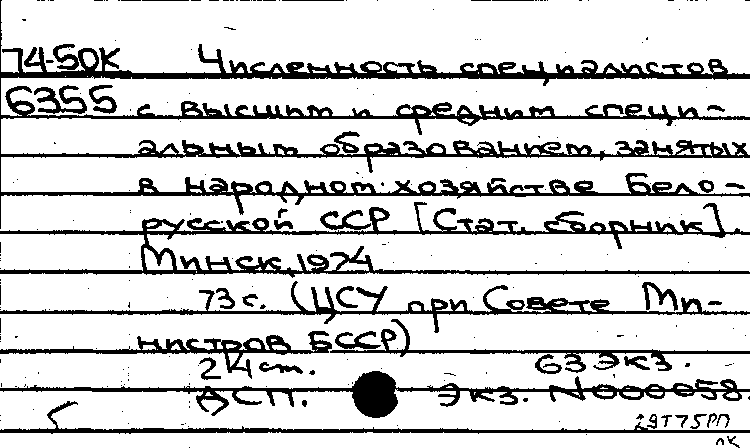 74-50К Численность специалистов
6355 с высшим и средним специ-
альным образованием, занятых
в народном хозяйстве Бело-
русской ССР [Стат. сборник].
Минск, 1974
73 с. (ЦСУ при Совете Ми-
нистров БССР)
24 cm. 63 экз.
ДСП. Экз. N000058.
29T75РП